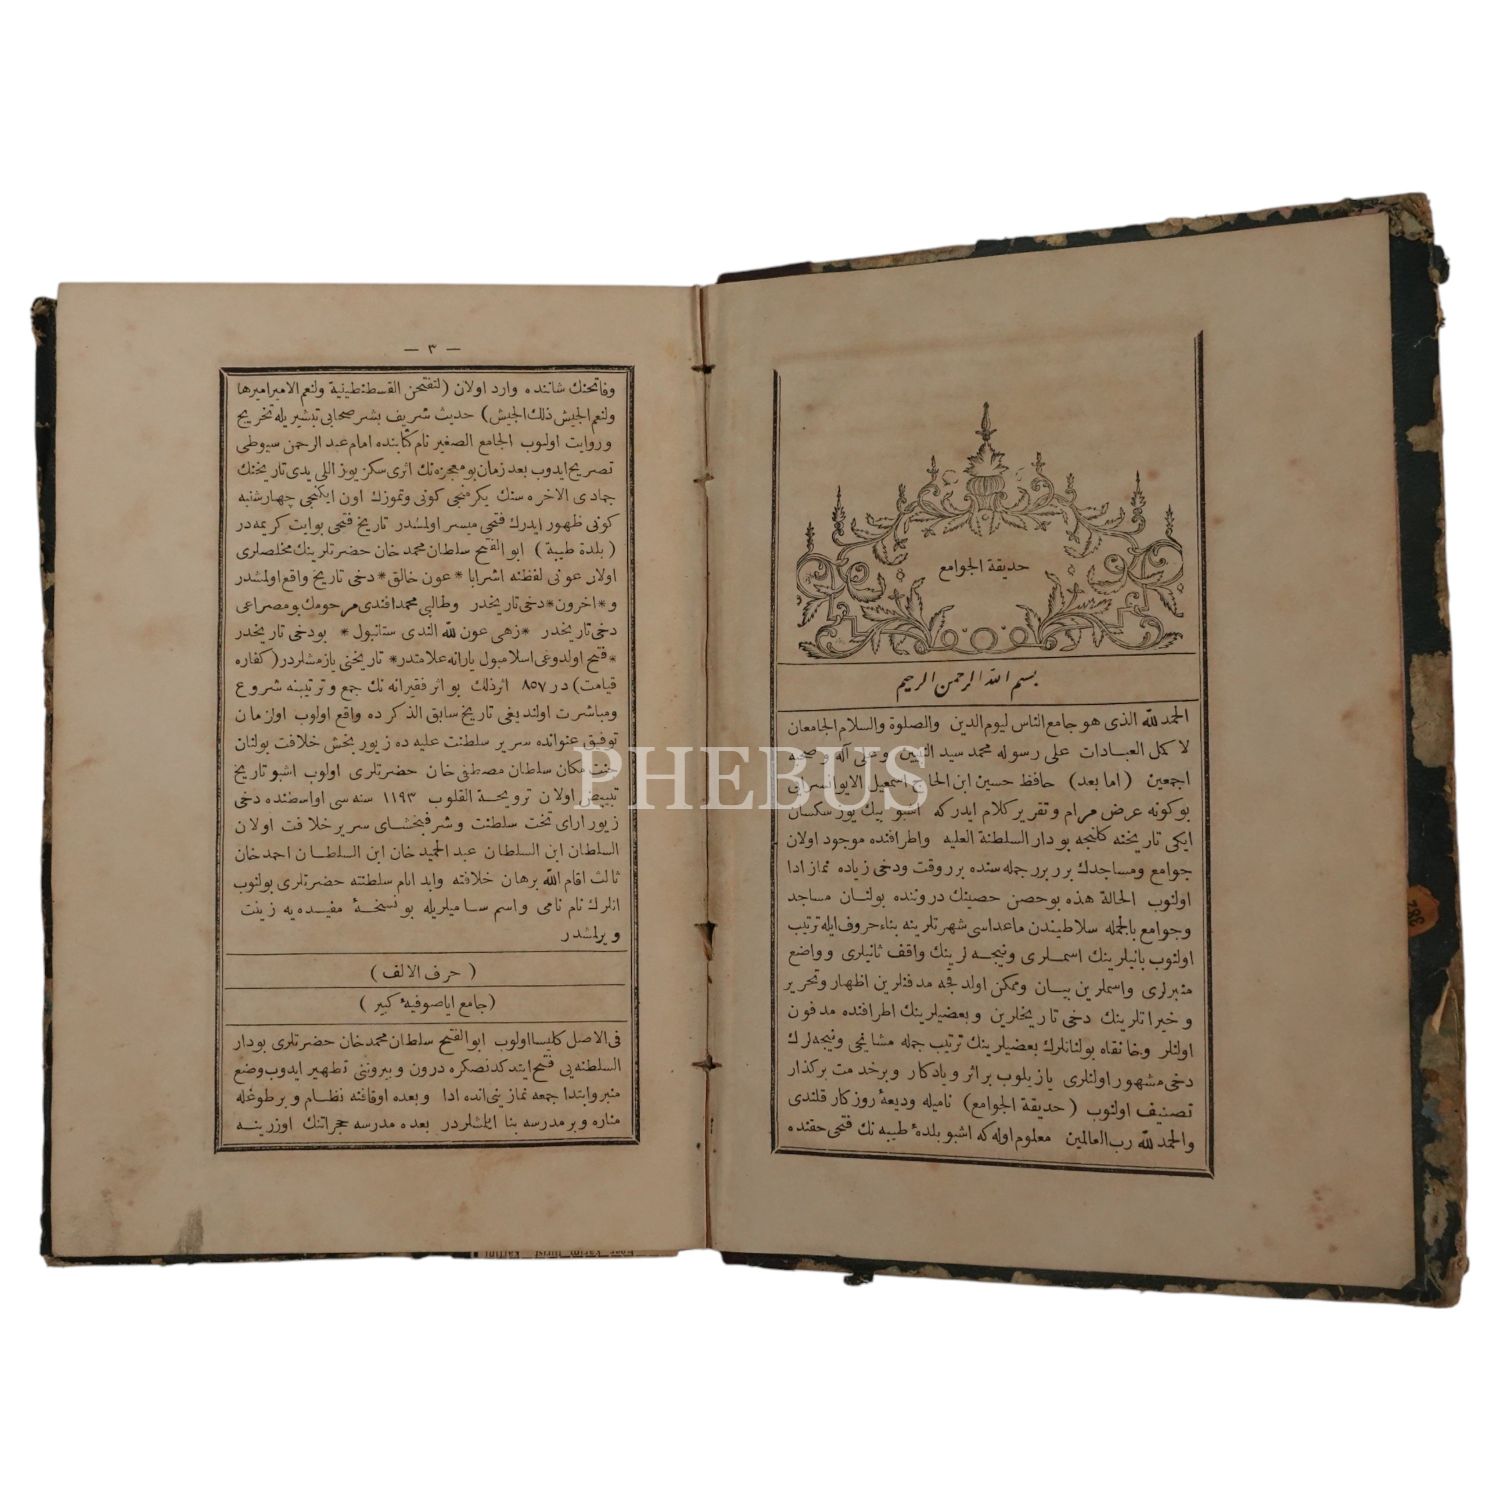 حديقة الجوامع
بسم الله الرحمن الرحيم
الحمد لله الذى هو جامع الناس ليوم الدين والصلوة والسلام الجامعان
لا كمل العبادات على رسوله محمد سيد النبيين وعلى آله وصحبه
اجمعين (اما بعد) حافظ حسين ابن الحاج اسمعيل الايوانسرايى
بو كونه عرض مرام وتقرير كلام ايدر كه اشبو بيك يوز سكسان
ايكى تاريخنه كلنجه بو دار السلطنة العليه واطرافنده موجود اولان
جوامع ومساجدك برر برر جمله سنده برر وقت ودخى زياده نماز ادا
اولنوب الحالة هذه بو حصن حصينك دروننده بولنان مساجد
وجوامع بالجمله سلاطيندن ماعداسى شهرتلرينه بناء حروف ايله ترتيب
اولنوب بانيلرينك اسملرى ونيجه لرينك واقف ثانيلرى وواضع
منبرلرى واسملرين بيان وممكن اولدقجه مدفنلرين اظهار وتحرير
وخيراتلرينك دخى تاريخلرين وبعضيلرينك اطرافنده مدفون
اولنلر وخانقاه بولنانلرك بعضيلرينك ترتيب جمله مشايخى ونيجه لرك
دخى مشهور اولنلرى يازيلوب بر اثر ويادكار وبر خدمت بركذار
تصنيف اولنوب (حديقة الجوامع) ناميله وديعۀ روزكار قلندى
والحمد لله رب العالمين معلوم اوله كه اشبو بلدۀ طيبه نك فتحى حقنده
— ٣ —
وفاتحنك شاننده وارد اولان (لتفتحن القسطنطينية ولنعم الامير اميرها
ولنعم الجيش ذلك الجيش) حديث شريف بشر صحابى تبشيريله تخريج
وروايت اولنوب الجامع الصغير نام كتابنده امام عبد الرحمن سيوطى
تصريح ايدوب بعد زمان بو معجزه نك اثرى سكز يوز اللى يدى تاريخنك
جمادى الاخره سنك يكرمنجى كونى وتموزك اون ايكنجى چهارشنبه
كونى ظهور ايدرك فتحى ميسر اولمشدر تاريخ فتحى بو ايت كريمه در
(بلدة طيبة) ابو الفتح سلطان محمد خان حضرتلرينك مخلصلرى
اولان عونى لفظنه اشرابا *عون خالق* دخى تاريخ واقع اولمشدر
و*اخرون* دخى تاريخدر وطالبى محمد افندى مرحومك بو مصراعى
دخى تاريخدر *زهى عون لله الندى ستانبول* بو دخى تاريخدر
*فتح اولدوغى اسلامبول يارانه علامتدر* تاريخنى يازمشلردر (كفاره
قيامت) در ٨٥٧ اثر ذلك بو اثر فقيرانه نك جمع وترتيبنه شروع
ومباشرت اولنديغى تاريخ سابق الذكرده واقع اولوب اول زمان
توفيق عنوانده سرير سلطنت عليه ده زيور بخش خلافت بولنان
جنت مكان سلطان مصطفى خان حضرتلرى اولوب اشبو تاريخ
تبييض اولان ترويحة القلوب ١١٩٣ سنه سى اواسطنده دخى
زيور اراى تخت سلطنت وشرفبخشاى سرير خلافت اولان
السلطان ابن السلطان عبد الحميد خان ابن السلطان احمد خان
ثالث اقام الله برهان خلافته وابد انام سلطنته حضرتلرى بولنوب
انلرك نام نامى واسم ساميلريله بو نسخۀ مفيده يه زينت
ويرلمشدر
(حرف الالف)
(جامع اياصوفيۀ كبير)
فى الاصل كليسا اولوب ابو الفتح سلطان محمد خان حضرتلرى بو دار
السلطنه يى فتح ايتدكدنصكره درون وبيروننى تطهير ايدوب وضع
منبر وابتدا جمعه نمازينى انده ادا وبعده اوقافنه نظام وبر طوغله
مناره وبر مدرسه بنا ايلمشلردر بعده مدرسه حجراتنك اوزرينه
PHEBUS